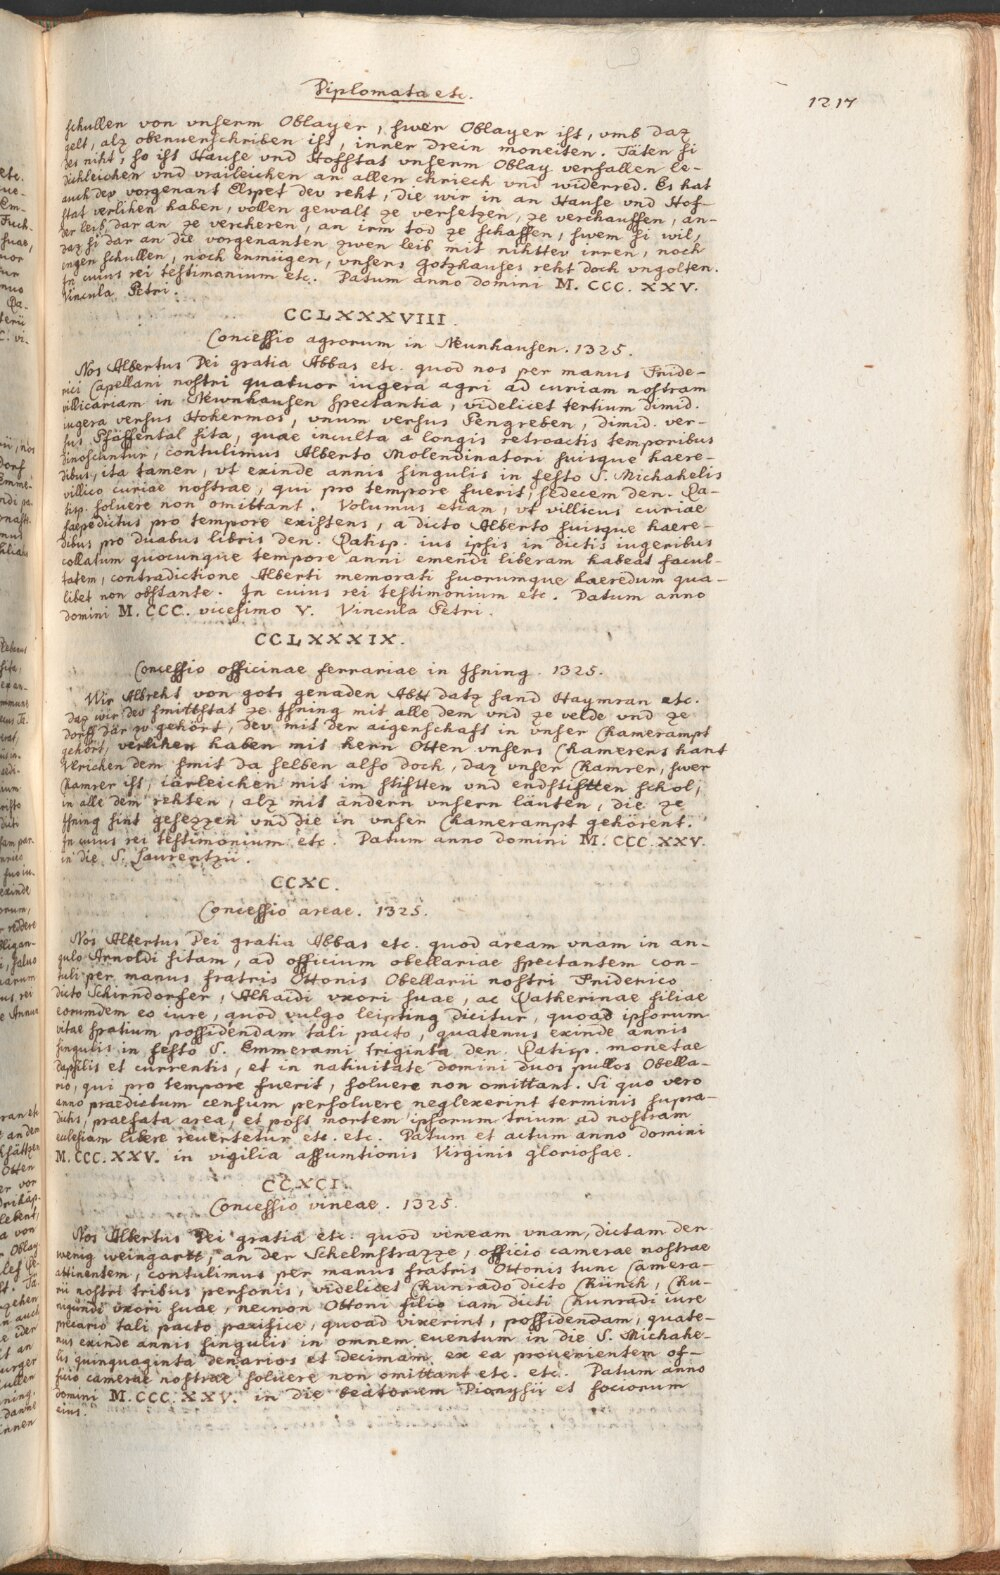 Diplomata etc.
1217
schullen von vnserm Oblayer, swer Oblayer ist, vmb daz
gelt, alz obenuerschriben ist, inner drein moneiten. Täten si
des niht, so ist Hause vnd Hofstat vnserm Oblay verfallen le-
dichleichen vnd vraileichen an allen chriech vnd widerred. Es hat
auch dev vorgenant Elspet dev reht, die wir in an Hause vnd Hof-
stat verlihen haben, vollen gewalt ze versetzen, ze verchauffen, an-
der leib, dar an ze vercheren, an irm tod ze schaffen, swem si wil,
daz si dar an die vorgenanten zwen leib mit nihttev irren, noch
engen schullen, noch enmugen, vnsers Gotzhauses reht doch vngolten.
In cuius rei testimonium etc. Datum anno domini M. CCC. XXV.
Vincula Petri.
CCLXXXVIII.
Concessio agrorum in Neunhausen. 1325.
Nos Albertus Dei gratia Abbas etc. quod nos per manus Fride-
rici Capellani nostri quatuor iugera agri ad curiam nostram
villicariam in Newnhausen spectantia, videlicet tertium dimid.
iugera versus Hokermos, vnum versus Pengreben, dimid. ver-
sus Pfäffental sita, quae inculta a longis retroactis temporibus
dinoscuntur, contulimus Alberto Molendinatori suisque haere-
dibus, ita tamen, vt exinde annis singulis in festo S. Michahelis
villico curiae nostrae, qui pro tempore fuerit, sedecem den. Ra-
tisp. soluere non omittant. Volumus etiam, vt villicus curiae
saepedictus pro tempore existens, a dicto Alberto suisque haere-
dibus pro duabus libris den. Ratisp. ius ipsis in dictis iugeribus
collatum quocunque tempore anni emendi liberam habeat facul-
tatem, contradictione Alberti memorati suorumque haeredum qua-
libet non obstante. In cuius rei testimonium etc. Datum anno
domini M. CCC. vicesimo V. Vincula Petri.
CCLXXXIX.
Concessio officinae ferrariae in Ihning. 1325.
Wir Albreht von gots genaden Abtt datz sand Haymran etc.
daz wir dev smittstat ze Ihning mit alle dem vnd ze velde vnd ze
dorff dar zv gehört, dev mit der aigenschaft in vnser Chamerampt
gehört, verlihen haben mit hern Otten vnsers Chamerers hant
Vlrichen dem smit da selben also doch, daz vnser Chamrer, swer
Chamrer ist, iärleichen mit im stiftten vnd endstiftten schol,
in alle dem rehten, alz mit andern vnsern läuten, die ze
Ihning sint gesezzen vnd die in vnser Chamerampt gehörent.
In cuius rei testimonium etc. Datum anno domini M. CCC. XXV.
in die S. Laurentzii.
CCXC.
Concessio areae. 1325.
Nos Albertus Dei gratia Abbas etc. quod aream vnam in an-
gulo Arnoldi sitam, ad officium obellariae spectantem con-
tuli per manus fratris Ottonis Obellarii nostri Friderico
dicto Schirndorfer, Alhaidi vxori suae, ac Katherinae filiae
eorumdem eo iure, quod vulgo leipting dicitur, quoad ipsorum
vitae spatium possidendam tali pacto, quatenus exinde annis
singulis in festo S. Emmerami triginta den. Ratisp. monetae
dapsilis et currentis, et in natiuitate domini duos pullos Obella-
rio, qui pro tempore fuerit, soluere non omittant. Si quo vero
anno praedictum censum persoluere neglexerint terminis supra-
dictis, praefata area, et post mortem ipsorum trium ad nostram
ecclesiam libere reuertetur etc. etc. Datum et actum anno domini
M. CCC. XXV. in vigilia assumtionis Virginis gloriosae.
CCXCI.
Concessio vineae. 1325.
Nos Albertus Dei gratia etc. quod vineam vnam, dictam der
wenig weingartt, an der Schelmstrazze, officio camerae nostrae
attinentem, contulimus per manus fratris Ottonis tunc Camera-
rii nostri tribus personis, videlicet Chunrado dicto Chünch, Chu-
nigundi vxori suae, necnon Ottoni filio iam dicti Chunradi iure
precario tali pacto pacifice, quoad vixerint, possidendam, quate-
nus exinde annis singulis in omnem euentum in die S. Michahe-
lis quinquaginta denarios et decimam ex ea prouenientem of-
ficio camerae nostrae soluere non omittant etc. etc. Datum anno
domini M. CCC. XXV. in die beatorum Dionysii et sociorum
eius.